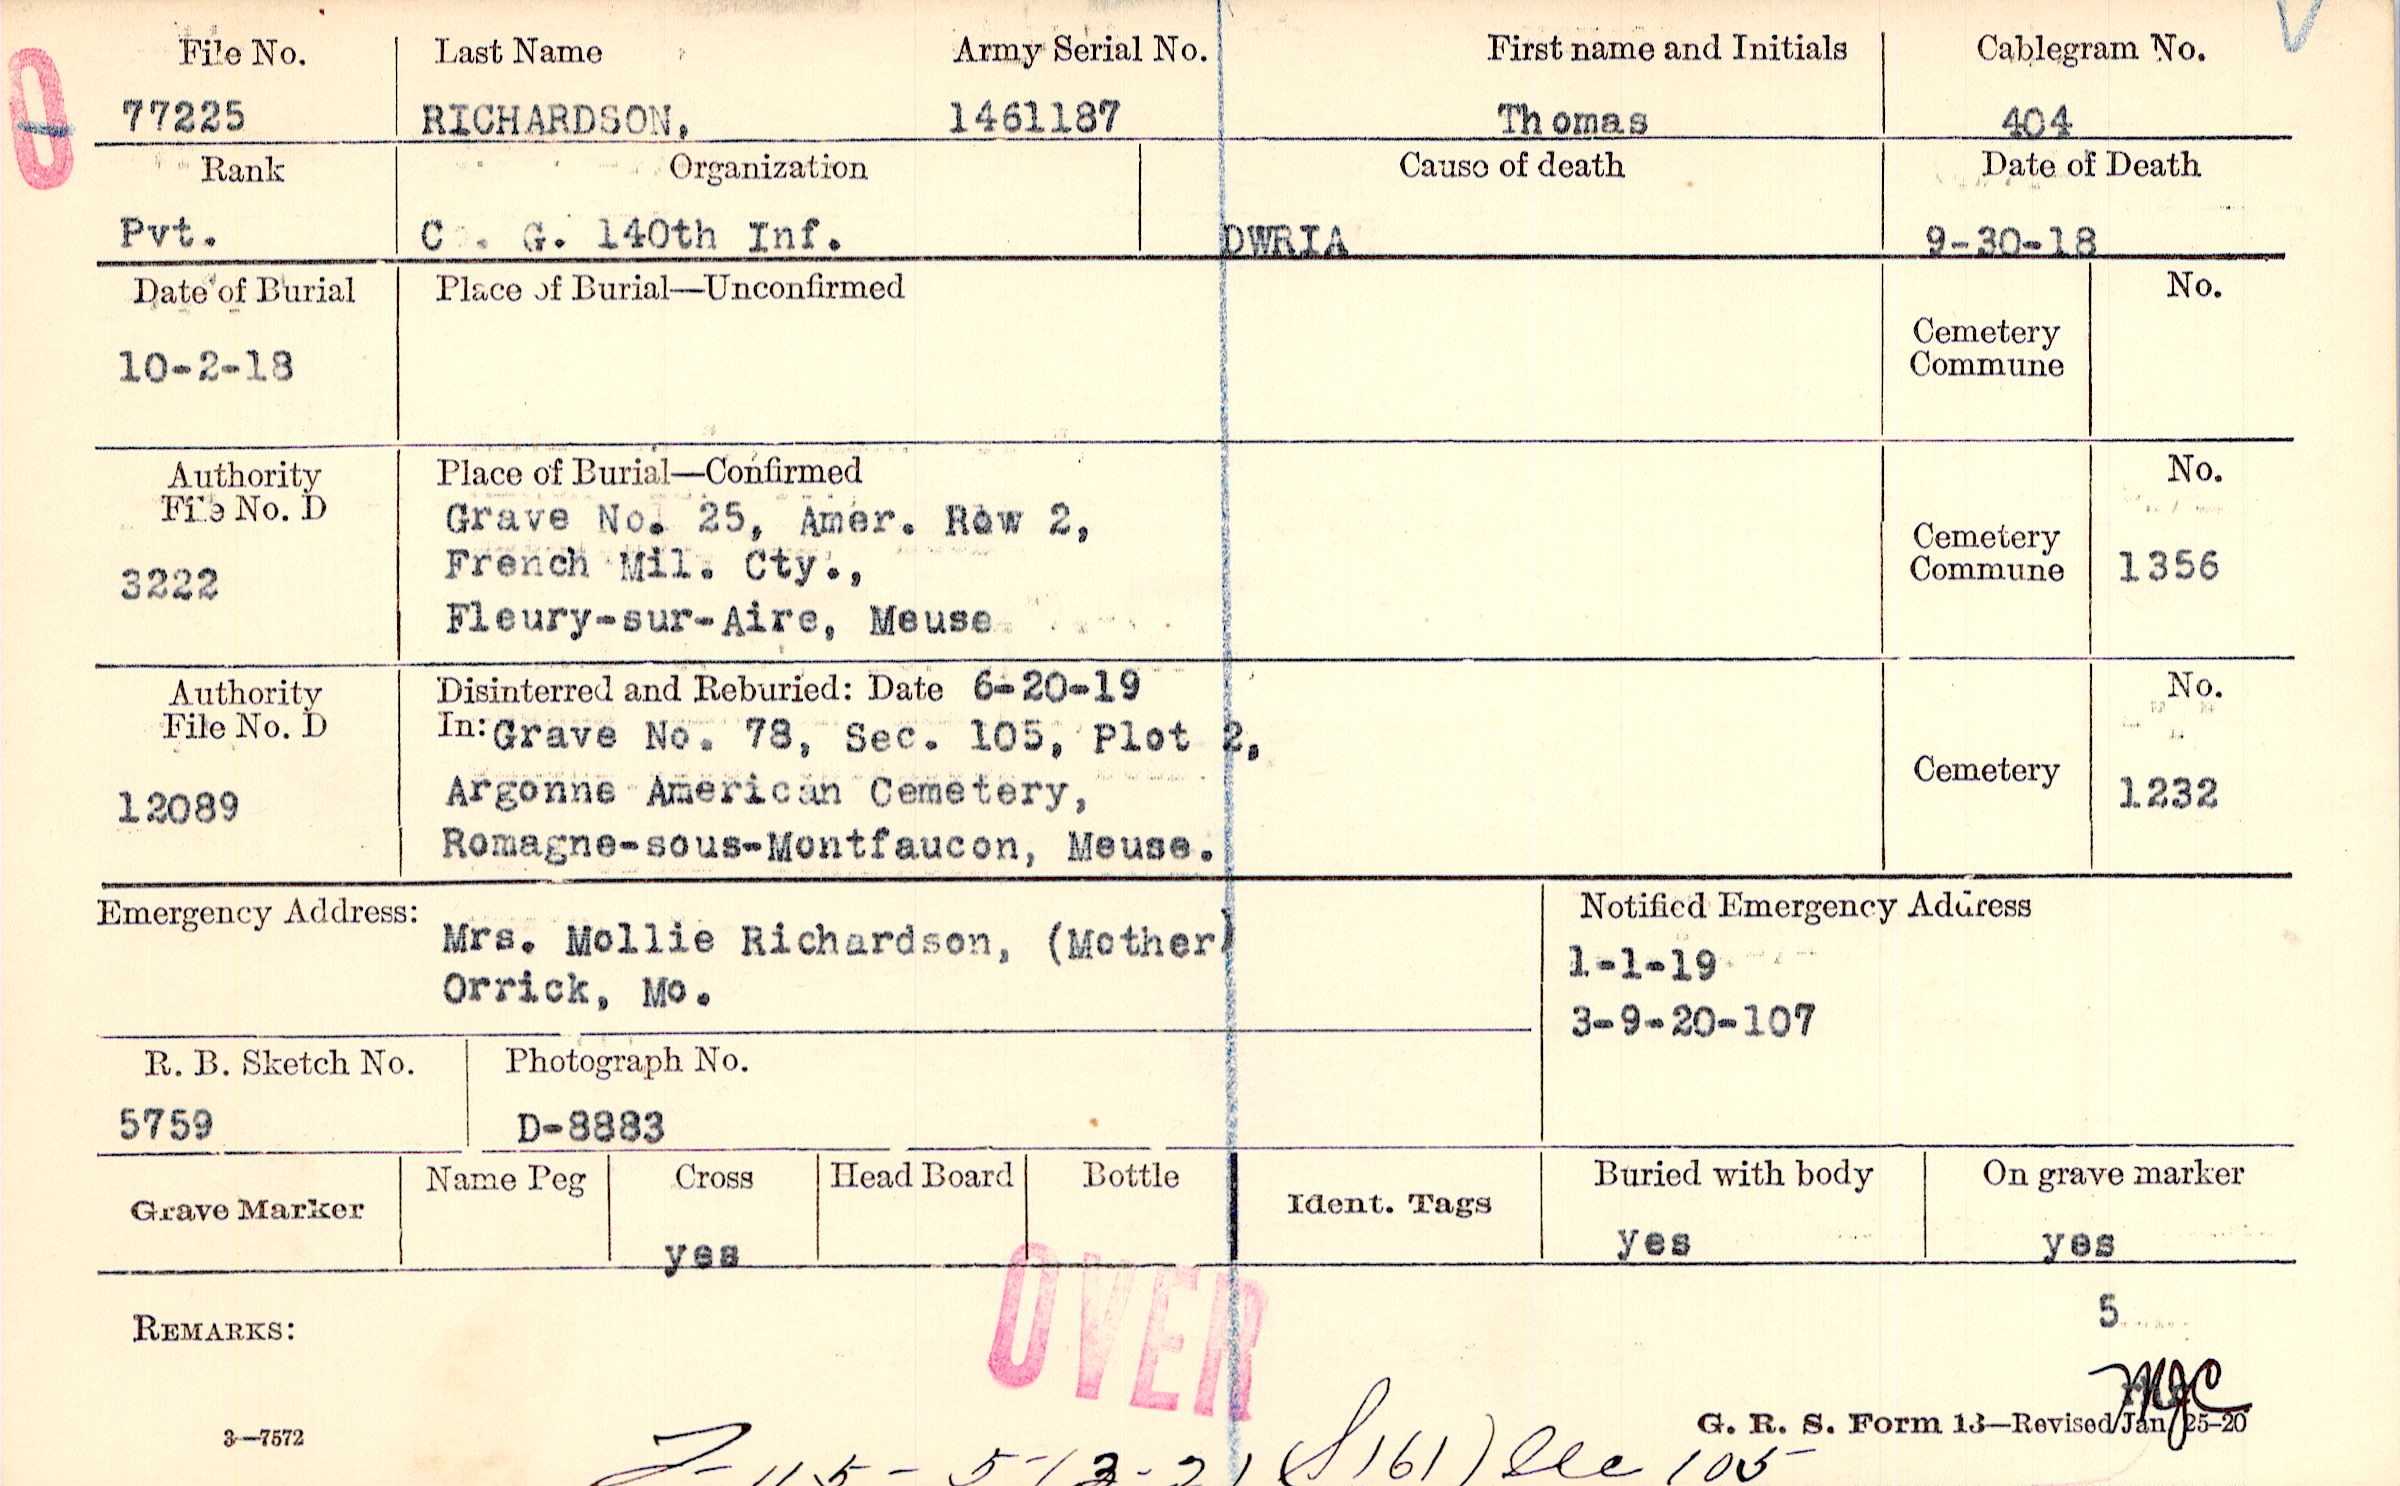 File No. Last Name Army Serial No. First name and Initials Cablegram No.
77225 RICHARDSON, 1461187 Thomas 404
Rank Organization Cause of death Date of Death
Pvt. Co. G. 140th Inf. DWRIA 9-30-18
Date of Burial Place of Burial—Unconfirmed No.
Cemetery
Commune
10-2-18
Authority Place of Burial—Confirmed No.
File No. D
Grave No. 25, Amer. Row 2,
French Mil. Cty.,
Cemetery
Commune
1356
3222
Fleury-sur-Aire, Meuse
Authority Disinterred and Reburied: Date 6-20-19 No.
File No. D In: Grave No. 78, Sec. 105, Plot 2,
Cemetery
Argonne American Cemetery,
12089 1232
Romagne-sous-Montfaucon, Meuse.
Emergency Address: Notified Emergency Address
Mrs. Mollie Richardson, (Mother)
Orrick, Mo.
1-1-19
3-9-20-107
R. B. Sketch No. Photograph No.
5759 D-8883
Grave Marker Name Peg Cross Head Board Bottle Ident. Tags Buried with body On grave marker
yes yes yes
OVER
5
REMARKS:
MJC
3—7572 G. R. S. Form 13—Revised Jan 25-20
(S161) Sec 105